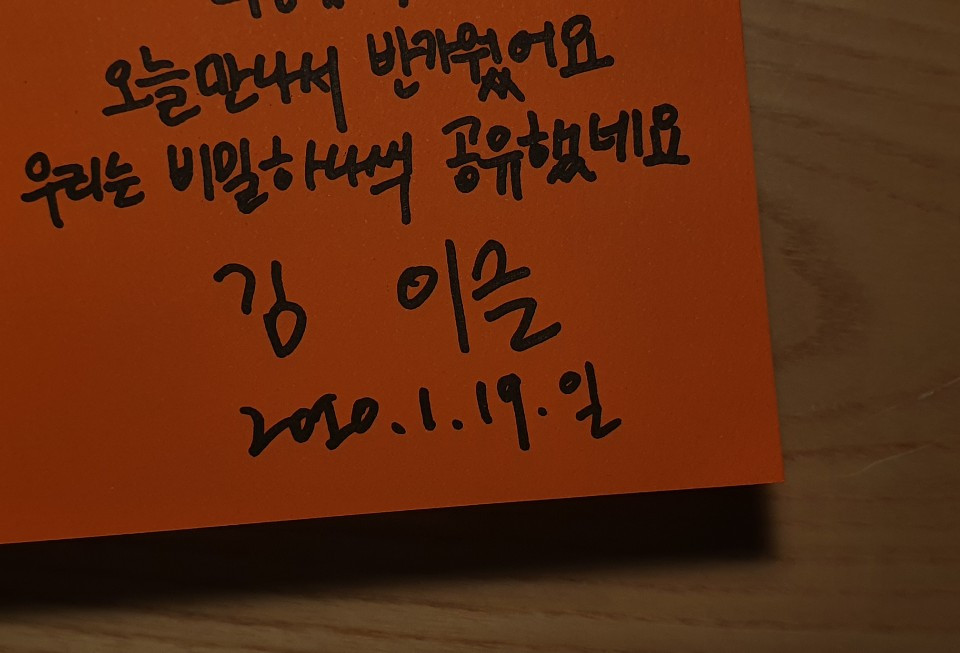 오늘 만나서 반가웠어요
우리는 비밀 하나씩 공유했네요
김 이슬
2020.1.19.일